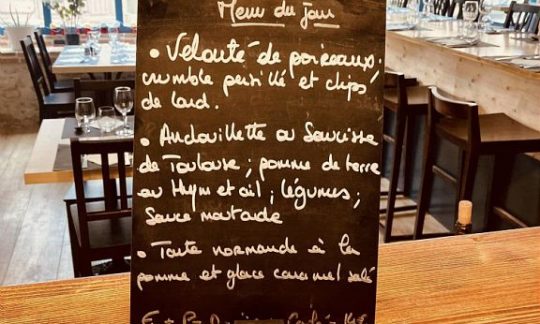 Menu du jour
• Velouté de poireaux,
crumble persillé et chips
de lard.
• Andouillette ou Saucisse
de Toulouse ; pomme de terre
au thym et ail ; légumes ;
Sauce moutarde
• Tarte normande à la
pomme et glace caramel salé
Café